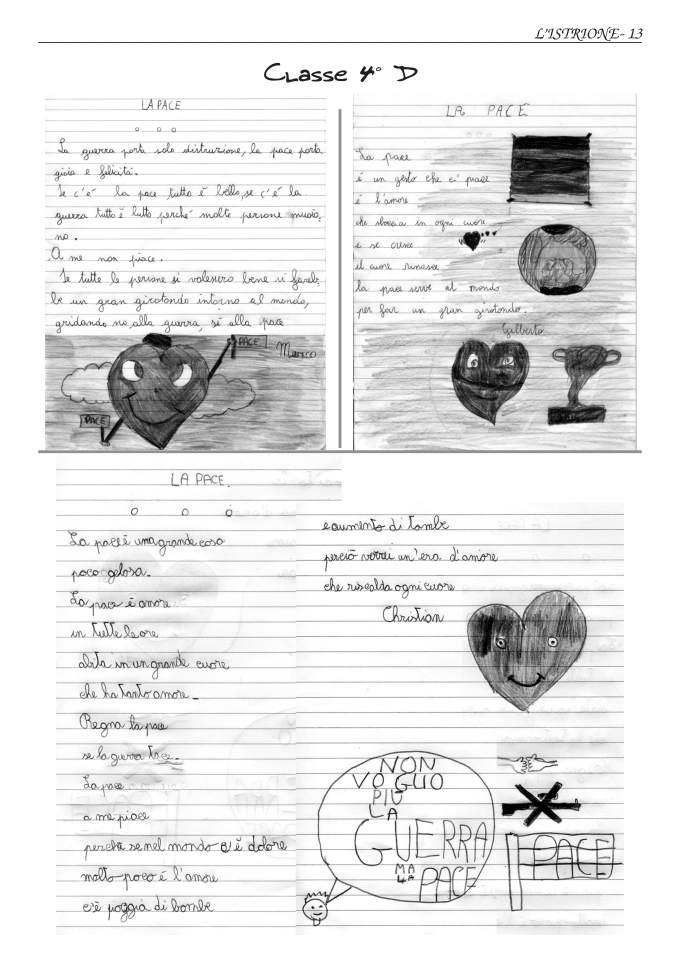 L'ISTRIONE- 13
Classe 4° D
LA PACE
La guerra porta solo distruzione, la pace porta
gioia e felicità.
Se c'é la pace tutto é bello, se c'é la
guerra tutto é lutto perché molte persone muoio,
no.
A me non piace.
Se tutte le persone si volessero bene si fareb,
be un gran girotondo intorno al mondo,
gridando no, alla guerra, sì alla pace
PACE
Marco
PACE
LA PACE
La pace
é un gesto che ci piace
é l'amore
che sboccia in ogni cuore
e se cresce
il cuore rinasce
la pace serve al mondo
per far un gran girotondo.
Gilberto
LA PACE.
La pace é una grande cosa
poco gelosa.
La pace é amore
in tutte le ore
abita in un grande cuore
che ha tanto amore.
Regna la pace
se la guerra tace.
La pace
a me piace
perché se nel mondo c'é dolore
molto poco é l'amore
c'é pioggia di bombe
e aumento di tombe
perciò vorrei un'era d'amore
che riscalda ogni cuore
Christian
NON
VOGLIO
PIÙ
LA
GUERRA
MA
LA
PACE
PACE